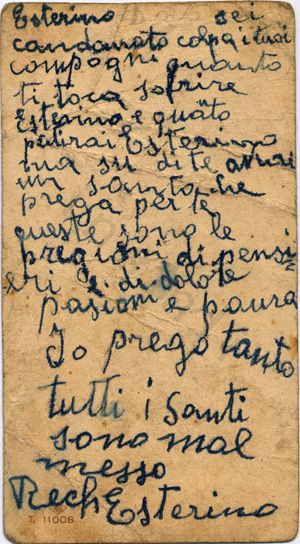 Esterino sei
candanato colpa i tuoi
compogni quanto
ti toca sofrire
Esterino e quato
patirai Esterino
ma su di te avrai
un santo che
prega per te
queste sono le
pregioni di pensi
eri e di dolote
pasioni e paura
Io prego tanto
tutti i santi
sono mal
messo
Rech Esterino
T. 11008